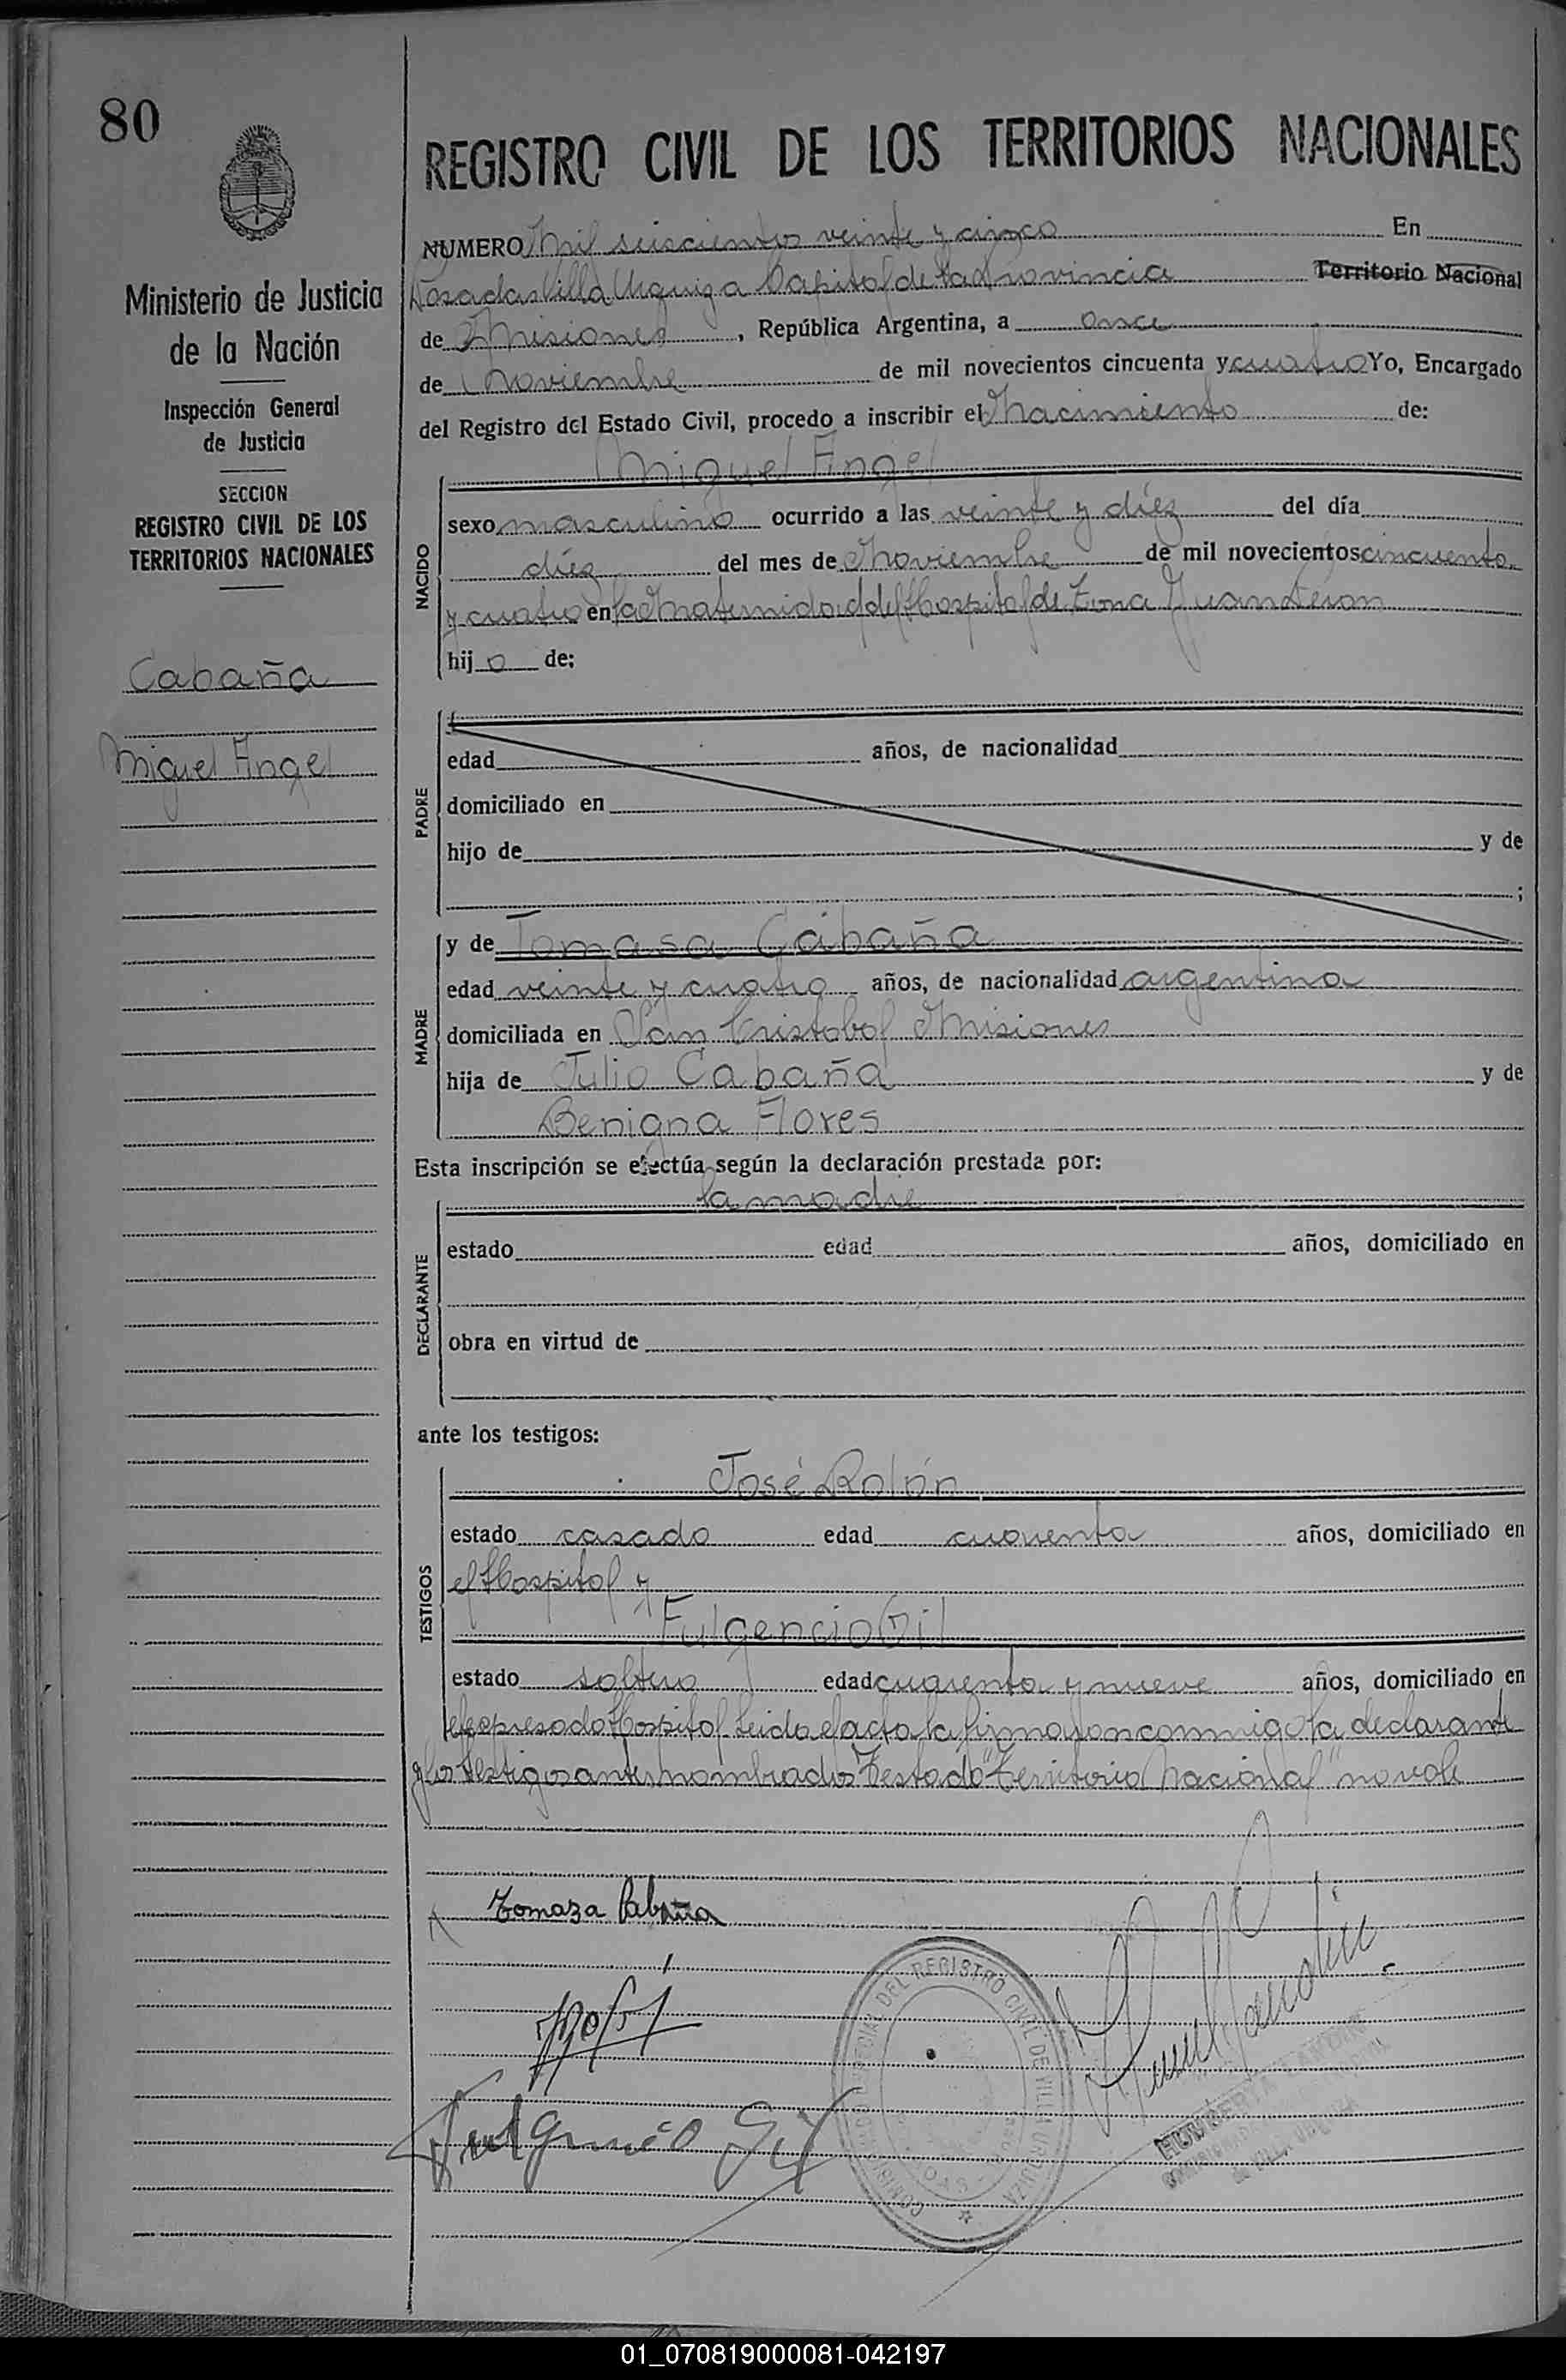 80
Ministerio de Justicia
de la Nación
Inspección General
de Justicia
SECCION
REGISTRO CIVIL DE LOS
TERRITORIOS NACIONALES
Cabaña
Miguel Angel
REGISTRO CIVIL DE LOS TERRITORIOS NACIONALES
NUMERO Mil seiscientos veinte y cinco En
Posadas Villa Urquiza Capital de la Provincia Territorio Nacional
de Misiones, República Argentina, a once
de Noviembre de mil novecientos cincuenta y cuatro Yo, Encargado
del Registro del Estado Civil, procedo a inscribir el Nacimiento de:
Miguel Angel
NACIDO
sexo masculino ocurrido a las veinte y diéz del día
diéz del mes de Noviembre de mil novecientos cincuenta
y cuatro en la Maternidad del Hospital de Zona Juan Peron
hijo de:
PADRE
edad años, de nacionalidad
domiciliado en
hijo de y de
;
MADRE
y de Tomasa Cabaña
edad veinte y cuatro años, de nacionalidad argentina
domiciliada en San Cristobal Misiones
hija de Julio Cabaña y de
Benigna Flores
Esta inscripción se efectúa según la declaración prestada por:
la madre
DECLARANTE
estado edad años, domiciliado en
obra en virtud de
ante los testigos:
José Rolón
TESTIGOS
estado casado edad cuarenta años, domiciliado en
el Hospital y
Fulgencio Gil
estado soltero edad cuarenta y nueve años, domiciliado en
el expresado Hospital Leida el acta la firmaron conmigo la declarante
y los testigos antes nombrados Testado "Territorio Nacional" no vale
Tomaza Cabaña
Fulgencio Gil
DEL REGISTRO CIVIL DE VILLA URQUIZA
01_070819000081-042197